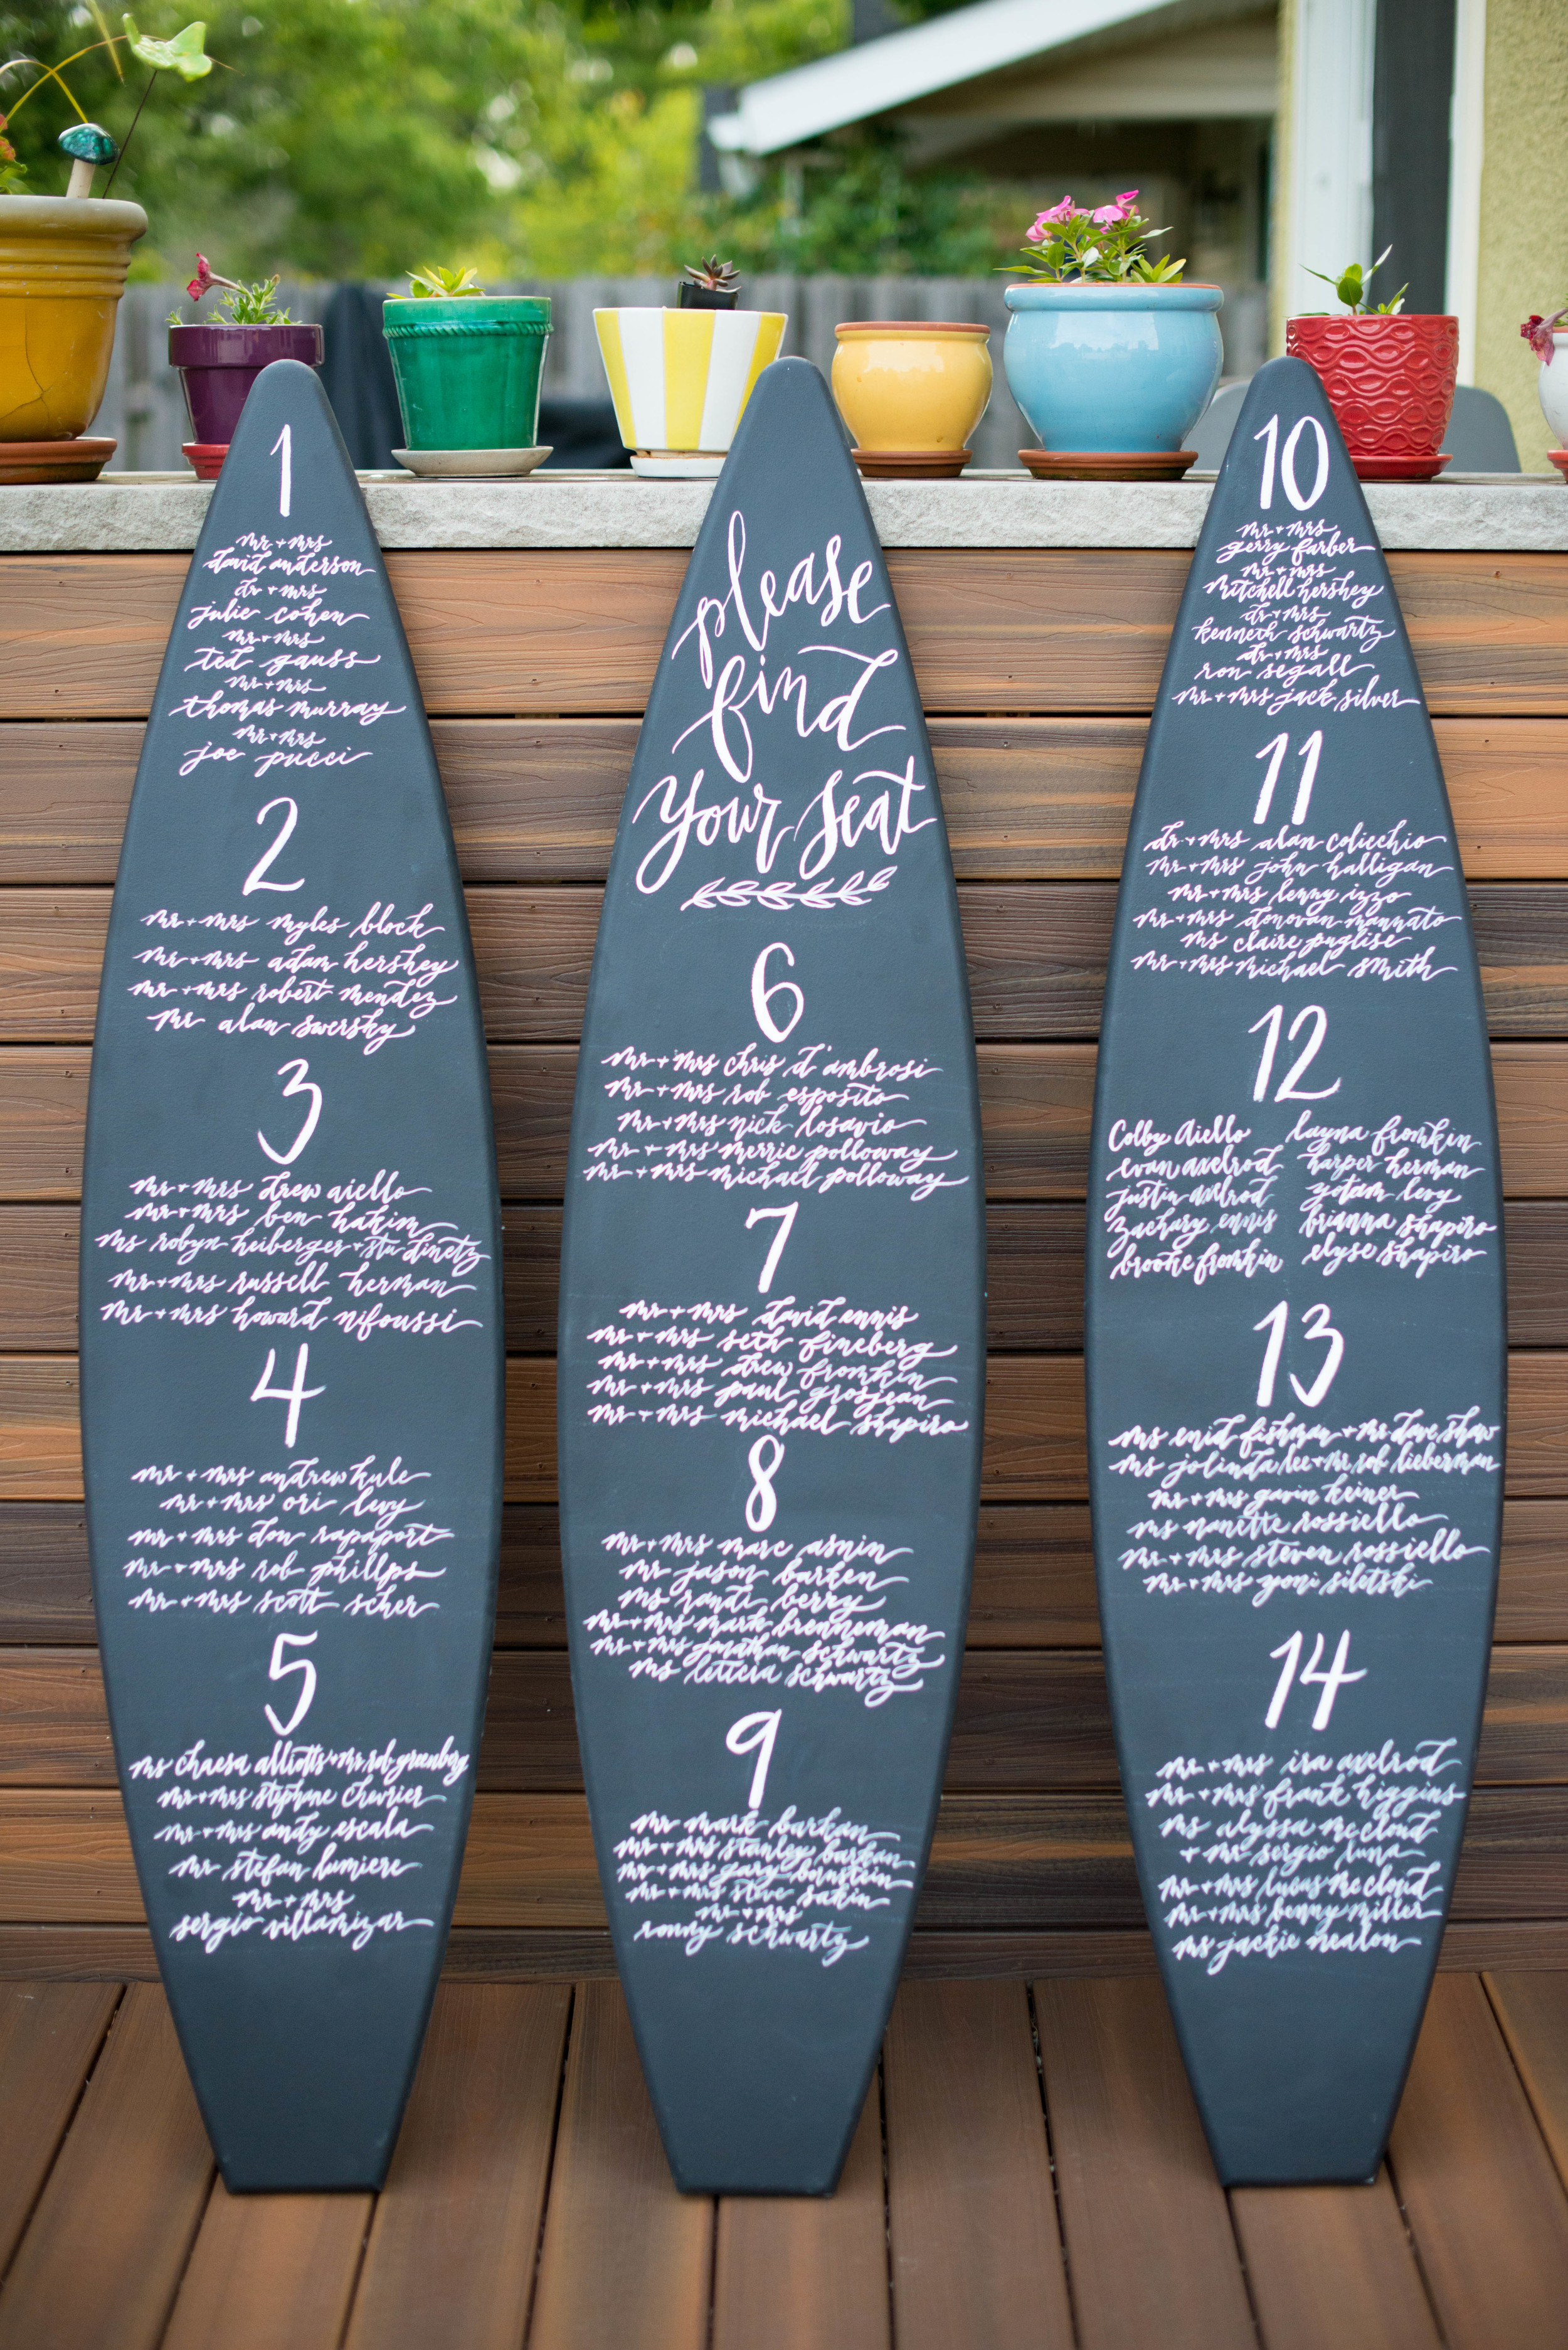 1
mr + mrs
david anderson
dr + mrs
julie cohen
mr + mrs
ted gauss
mr + mrs
thomas murray
mr + mrs
joe pucci
2
mr + mrs myles block
mr + mrs adam hershey
mr + mrs robert mendez
mr alan swersky
3
mr + mrs drew aiello
mr + mrs ben hakim
ms robyn heiberger + stu dinetz
mr + mrs russell herman
mr + mrs howard nifoussi
4
mr + mrs andrew kule
mr + mrs ori levy
mr + mrs don rapaport
mr + mrs rob phillps
mr + mrs scott scher
5
ms chaesa alliotts + mr rob greenberg
mr + mrs stephane chevrier
mr + mrs andy escala
mr stefan lumiere
mr + mrs
sergio villamizar
please
find
your seat
6
mr + mrs chris d'ambrosi
mr + mrs rob esposito
mr + mrs nick losavio
mr + mrs merric polloway
mr + mrs michael polloway
7
mr + mrs david ennis
mr + mrs seth fineberg
mr + mrs drew fromkin
mr + mrs paul grosjean
mr + mrs michael shapiro
8
mr + mrs marc asnin
mr jason barken
ms randi berry
mr + mrs mark brenneman
mr + mrs jonathan schwartz
ms schwartz
9
mr mark barkan
mr + mrs stanley barkan
mr + mrs gary bernstein
mr + mrs steve sakin
mr + mrs
ronny schwartz
10
mr + mrs
gerry farber
mr + mrs
mitchell hershey
dr + mrs
kenneth schwartz
dr + mrs
ron segall
mr + mrs jack silver
11
dr + mrs alan colicchio
mr + mrs john halligan
mr + mrs lenny izzo
mr + mrs donovan mannato
ms claire puglise
mr + mrs michael smith
12
Colby Aiello layna fromkin
evan axelrod harper herman
justin axelrod yotam levy
zachary ennis brianna shapiro
brooke fromkin elyse shapiro
13
ms enid fishman + mr dave shaw
ms jolinda lee + mr rob lieberman
mr + mrs gavin keiner
ms nanette rossiello
mr + mrs steven rossiello
mr + mrs yoni siletski
14
mr + mrs ira axelrod
mr + mrs frank higgins
ms alyssa mccloud
+ mr sergio luna
mr + mrs lucas mccloud
mr + mrs benny miller
ms jackie nealon